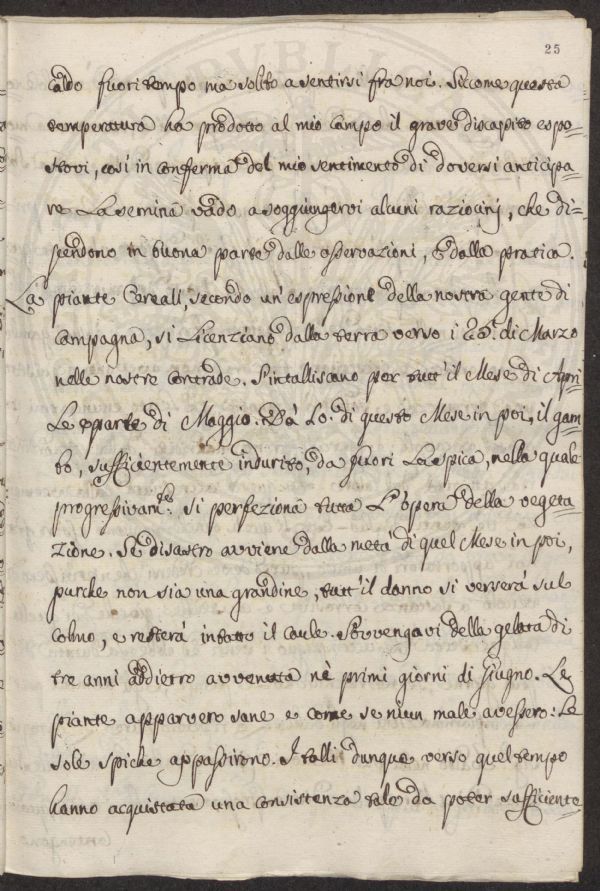 25
caldo fuori tempo ma solito a sentirsi fra noi. Siccome questa
temperatura ha prodotto al mio campo il grave discapito espo=
stovi, così in conferma del mio sentimento di doversi anticipa=
re la semina vado a soggiungervi alcuni raziocinj, che di=
pendono in buona parte dalle osservazioni, e dalla pratica.
Le piante Cereali, secondo un'espressione della nostra gente di
campagna, si Licenziano dalla terra verso i 25. di Marzo
nelle nostre contrade. S'intalliscano per tutt'il Mese di Apri=
Le e parte di Maggio. Da Lo. di questo Mese in poi, il gam=
bo, sufficientemente indurito, da fuori La spica, nella quale
progressivam.te si perfeziona tutta L'opera della vegeta=
zione. Se disastro avviene dalla metà di quel Mese in poi,
purche non sia una grandine, tutt'il danno si verserà sul
colmo, e resterà intatto il caule. Sovvengavi della gelata di
tre anni addietro avvenuta ne' primi giorni di Giugno. Le
piante apparvero sane e come se niun male avessero: Le
sole spiche appassirono. I talli dunque verso quel tempo
hanno acquistata una consistenza tale da poter sufficiente=